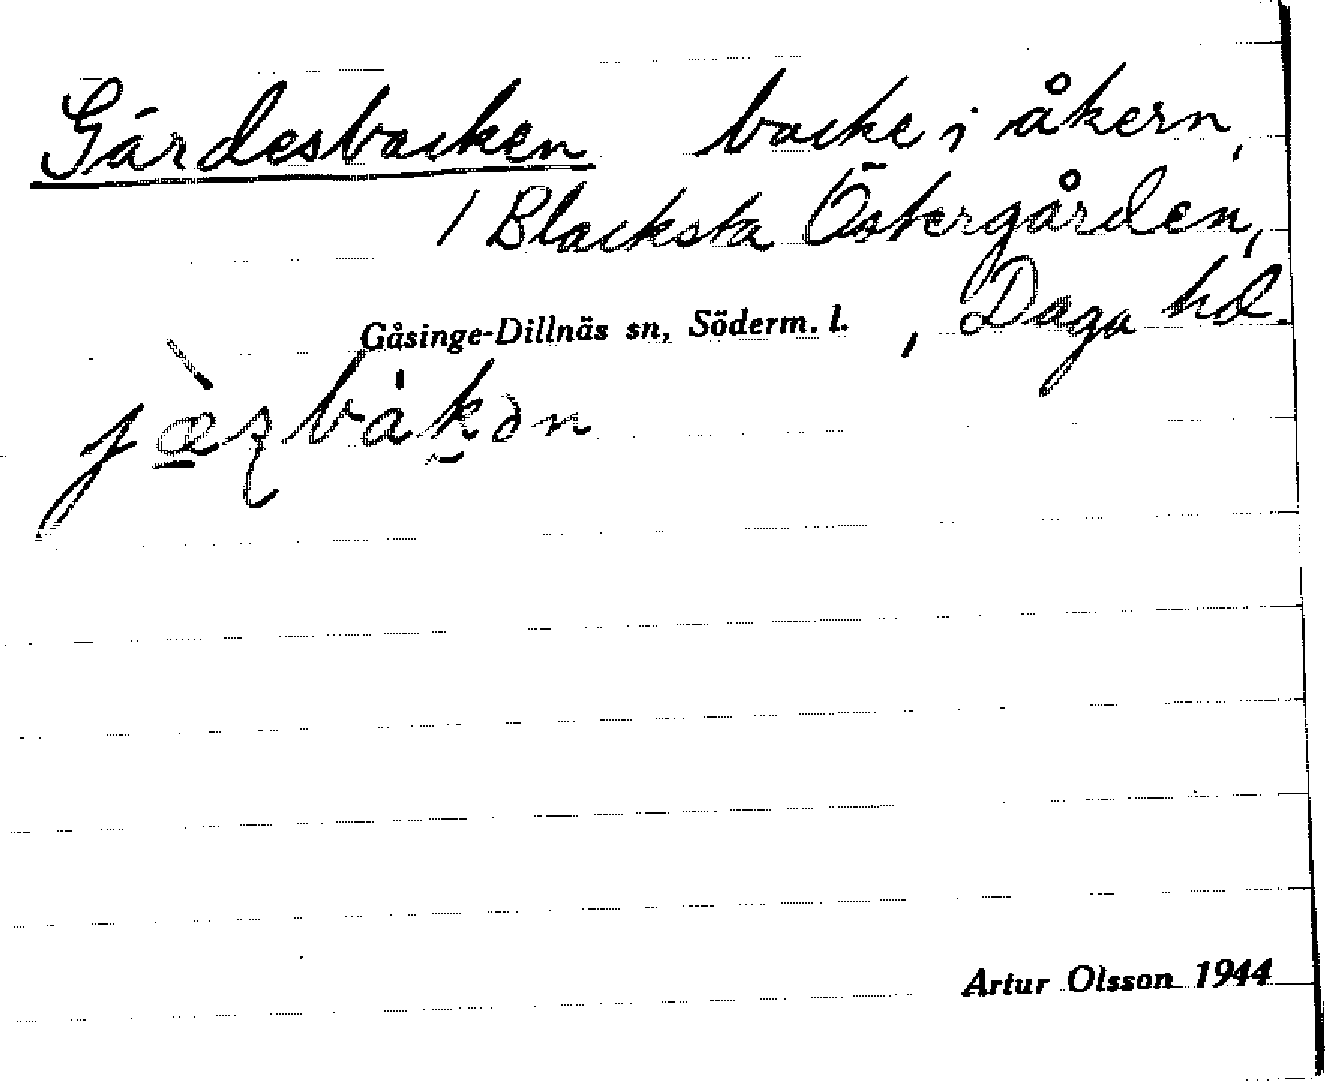 Gärdesbacken backe i åkern,
/ Blacksta Östergården,
Gåsinge-Dillnäs sn, Söderm. l. , Daga hd.
Artur Olsson 1944